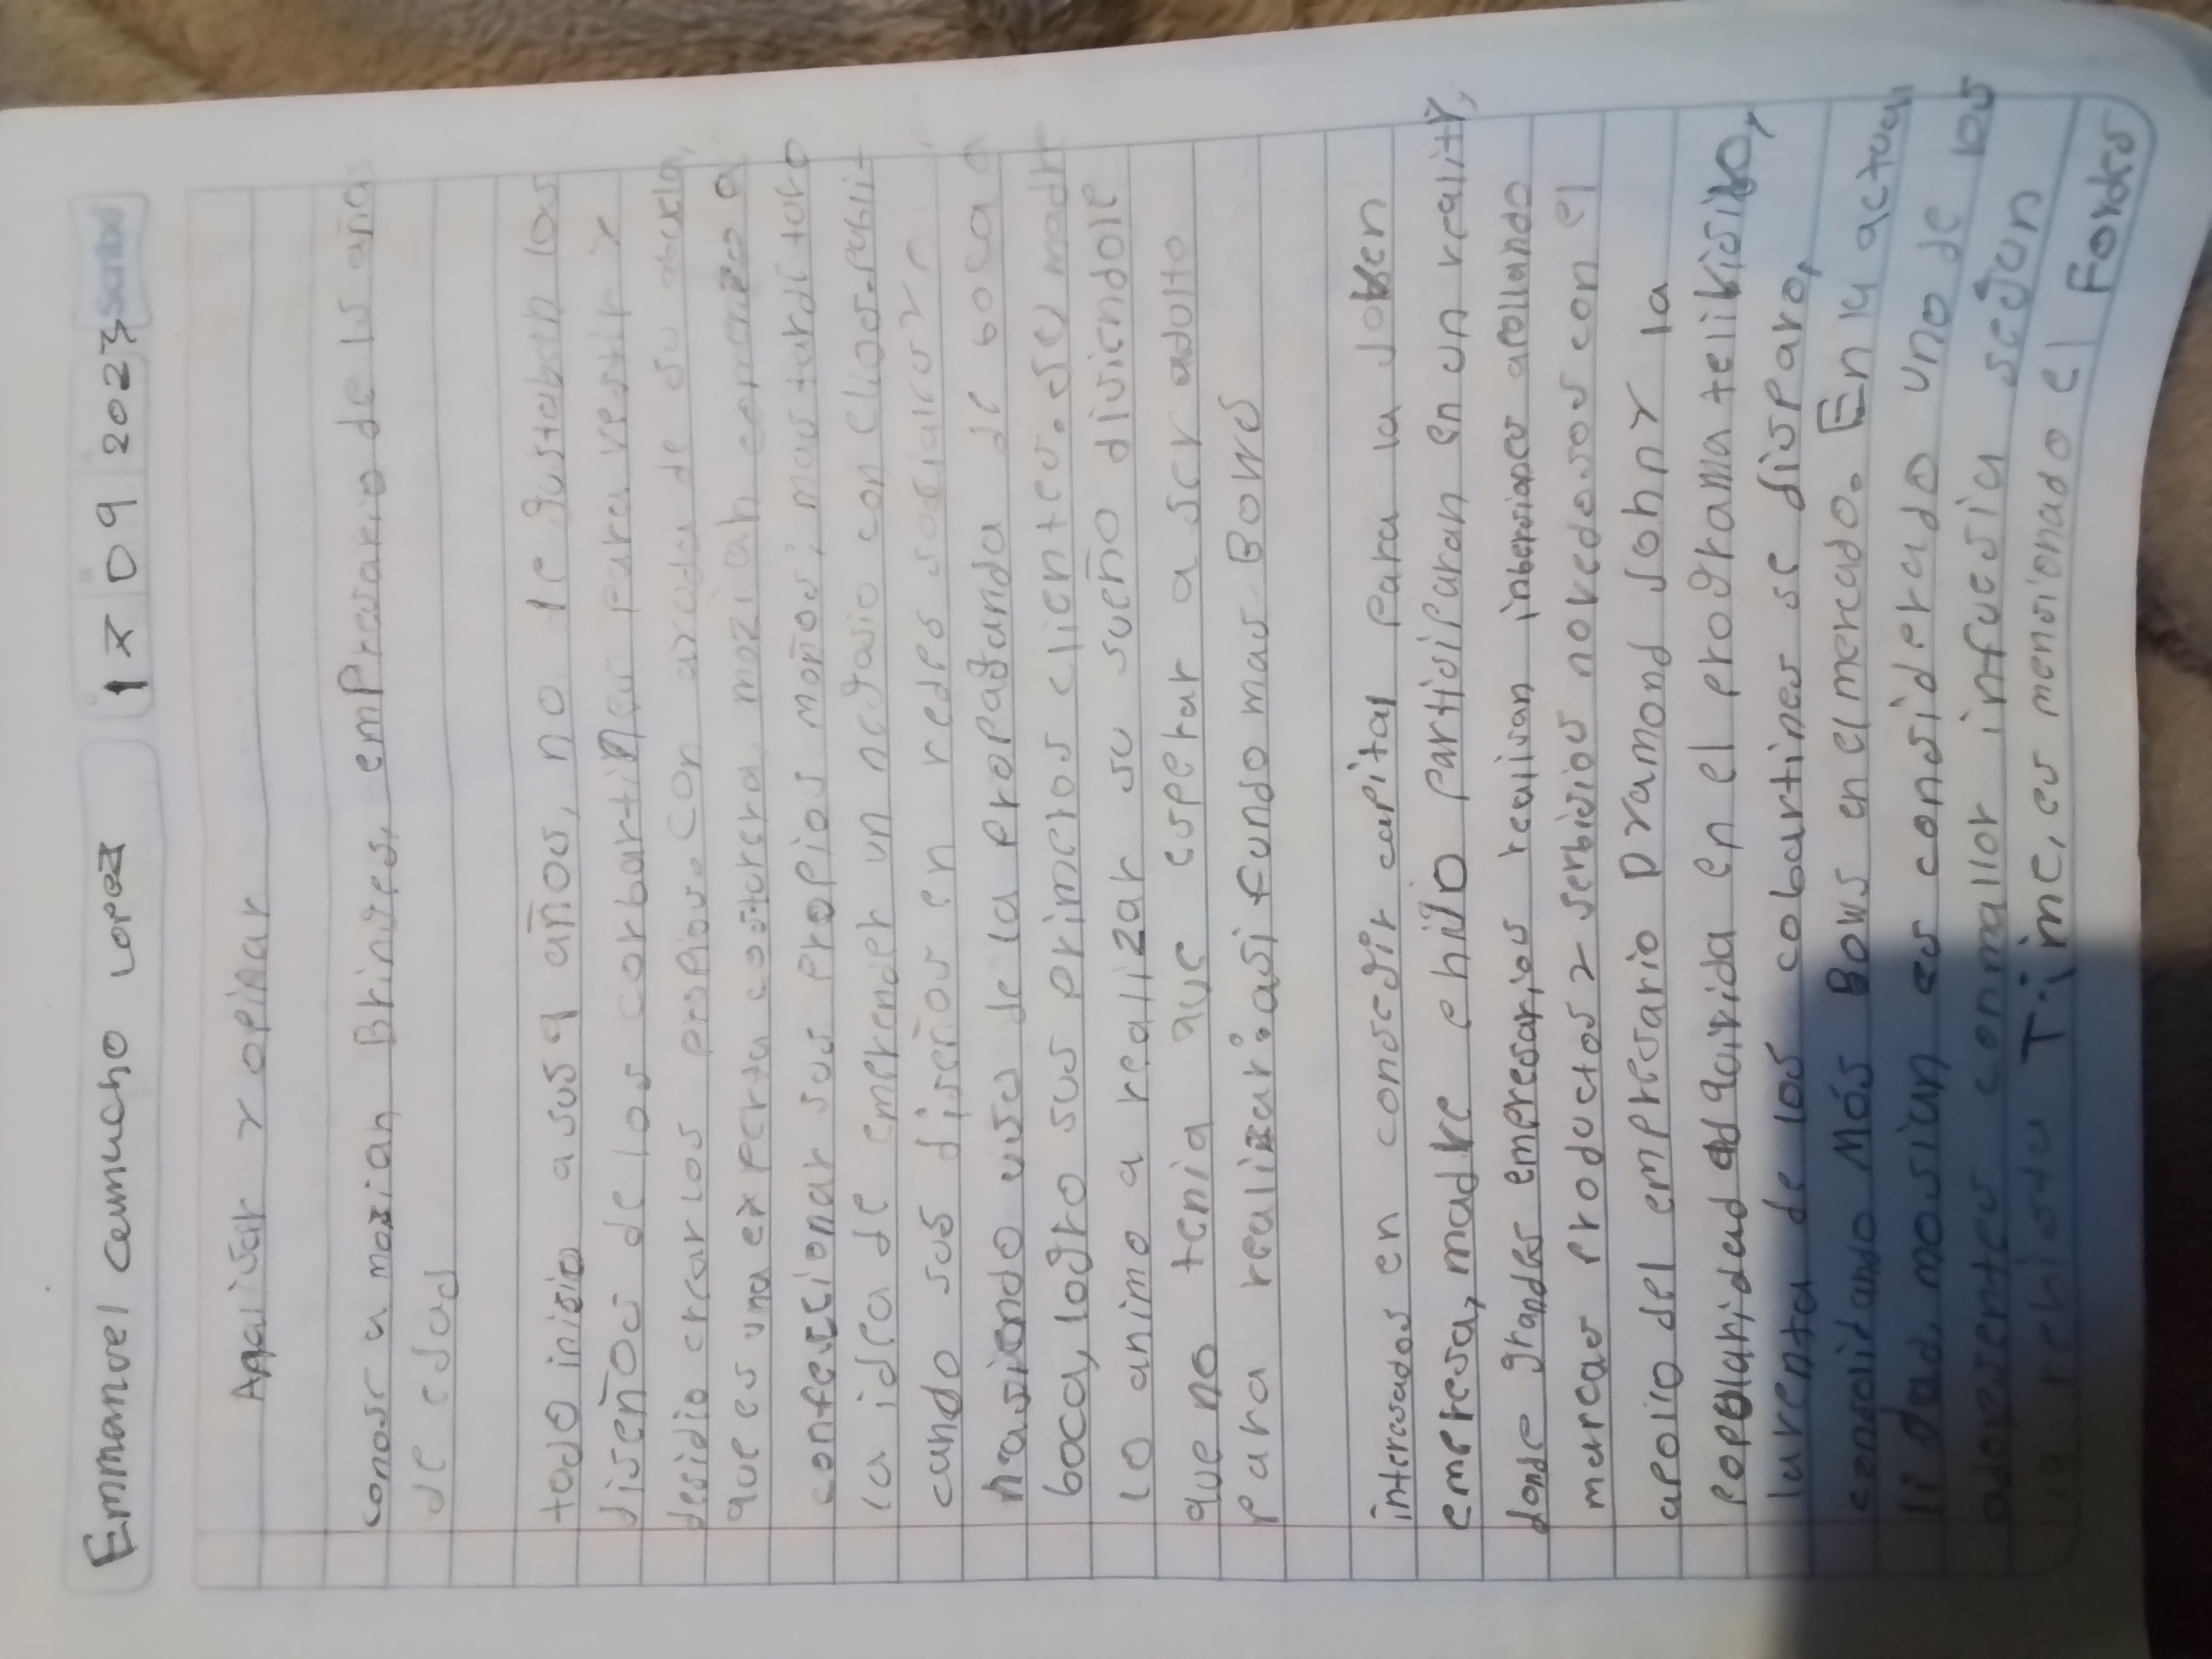 Emmanuel camucho Lopez 1 x 09 2023 Scribe
Aqalisar y opinar
conose a mozian Brinjes, empresario de 15 años
de edad
todo inisio a sus 9 años, no le gustaban los
diseños de los corbartines para vestir y
desidio crearlos propios. Con ayuda de su abuela,
que es una experta costurera, mozian comenzo a
confeccionar sus propios moños; mas tarde tubo
la idea de emprender un negosio con ellos. publi-
cando sus diseños en redes sociales y
hasiendo uso de la propaganda de boca a
boca, logro sus primeros clientes. su madre
lo animo a realizar su sueño disiendole
que no tenia que esperar a ser adulto
para realizar: asi fundo mas Bows
interesados en consegir capital para la joben
empresa, madre e hijo partisiparan en un reality,
donde grandes empresarios realisan inbersiones apollando
marcas productos y serbisios novedosos con el
apollo del empresario Dyamond John y la
popularidad adquirida en el programa telibisibo,
laventa de los cobartines se disparo,
consolidando Mós Bows en el mercado. En la actua
lidad, mosian es considerado uno de los
adolesentes con mallor infuesia según
la rebista Time, es mensionado el Fordes